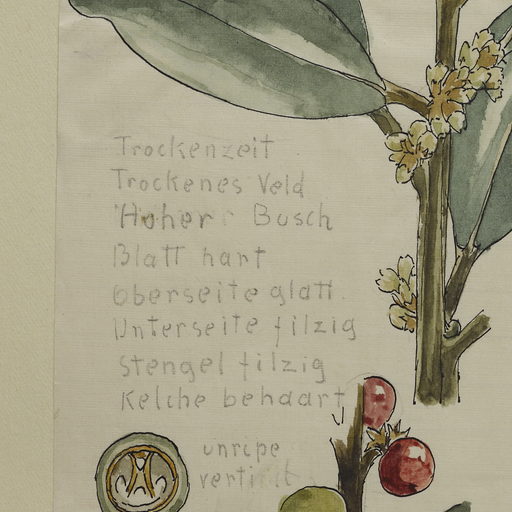 Trockenzeit
Trockenes Veld
Hoher Busch
Blatt hart
Oberseite glatt.
Unterseite filzig
Stengel filzig
Kelche behaart
unripe